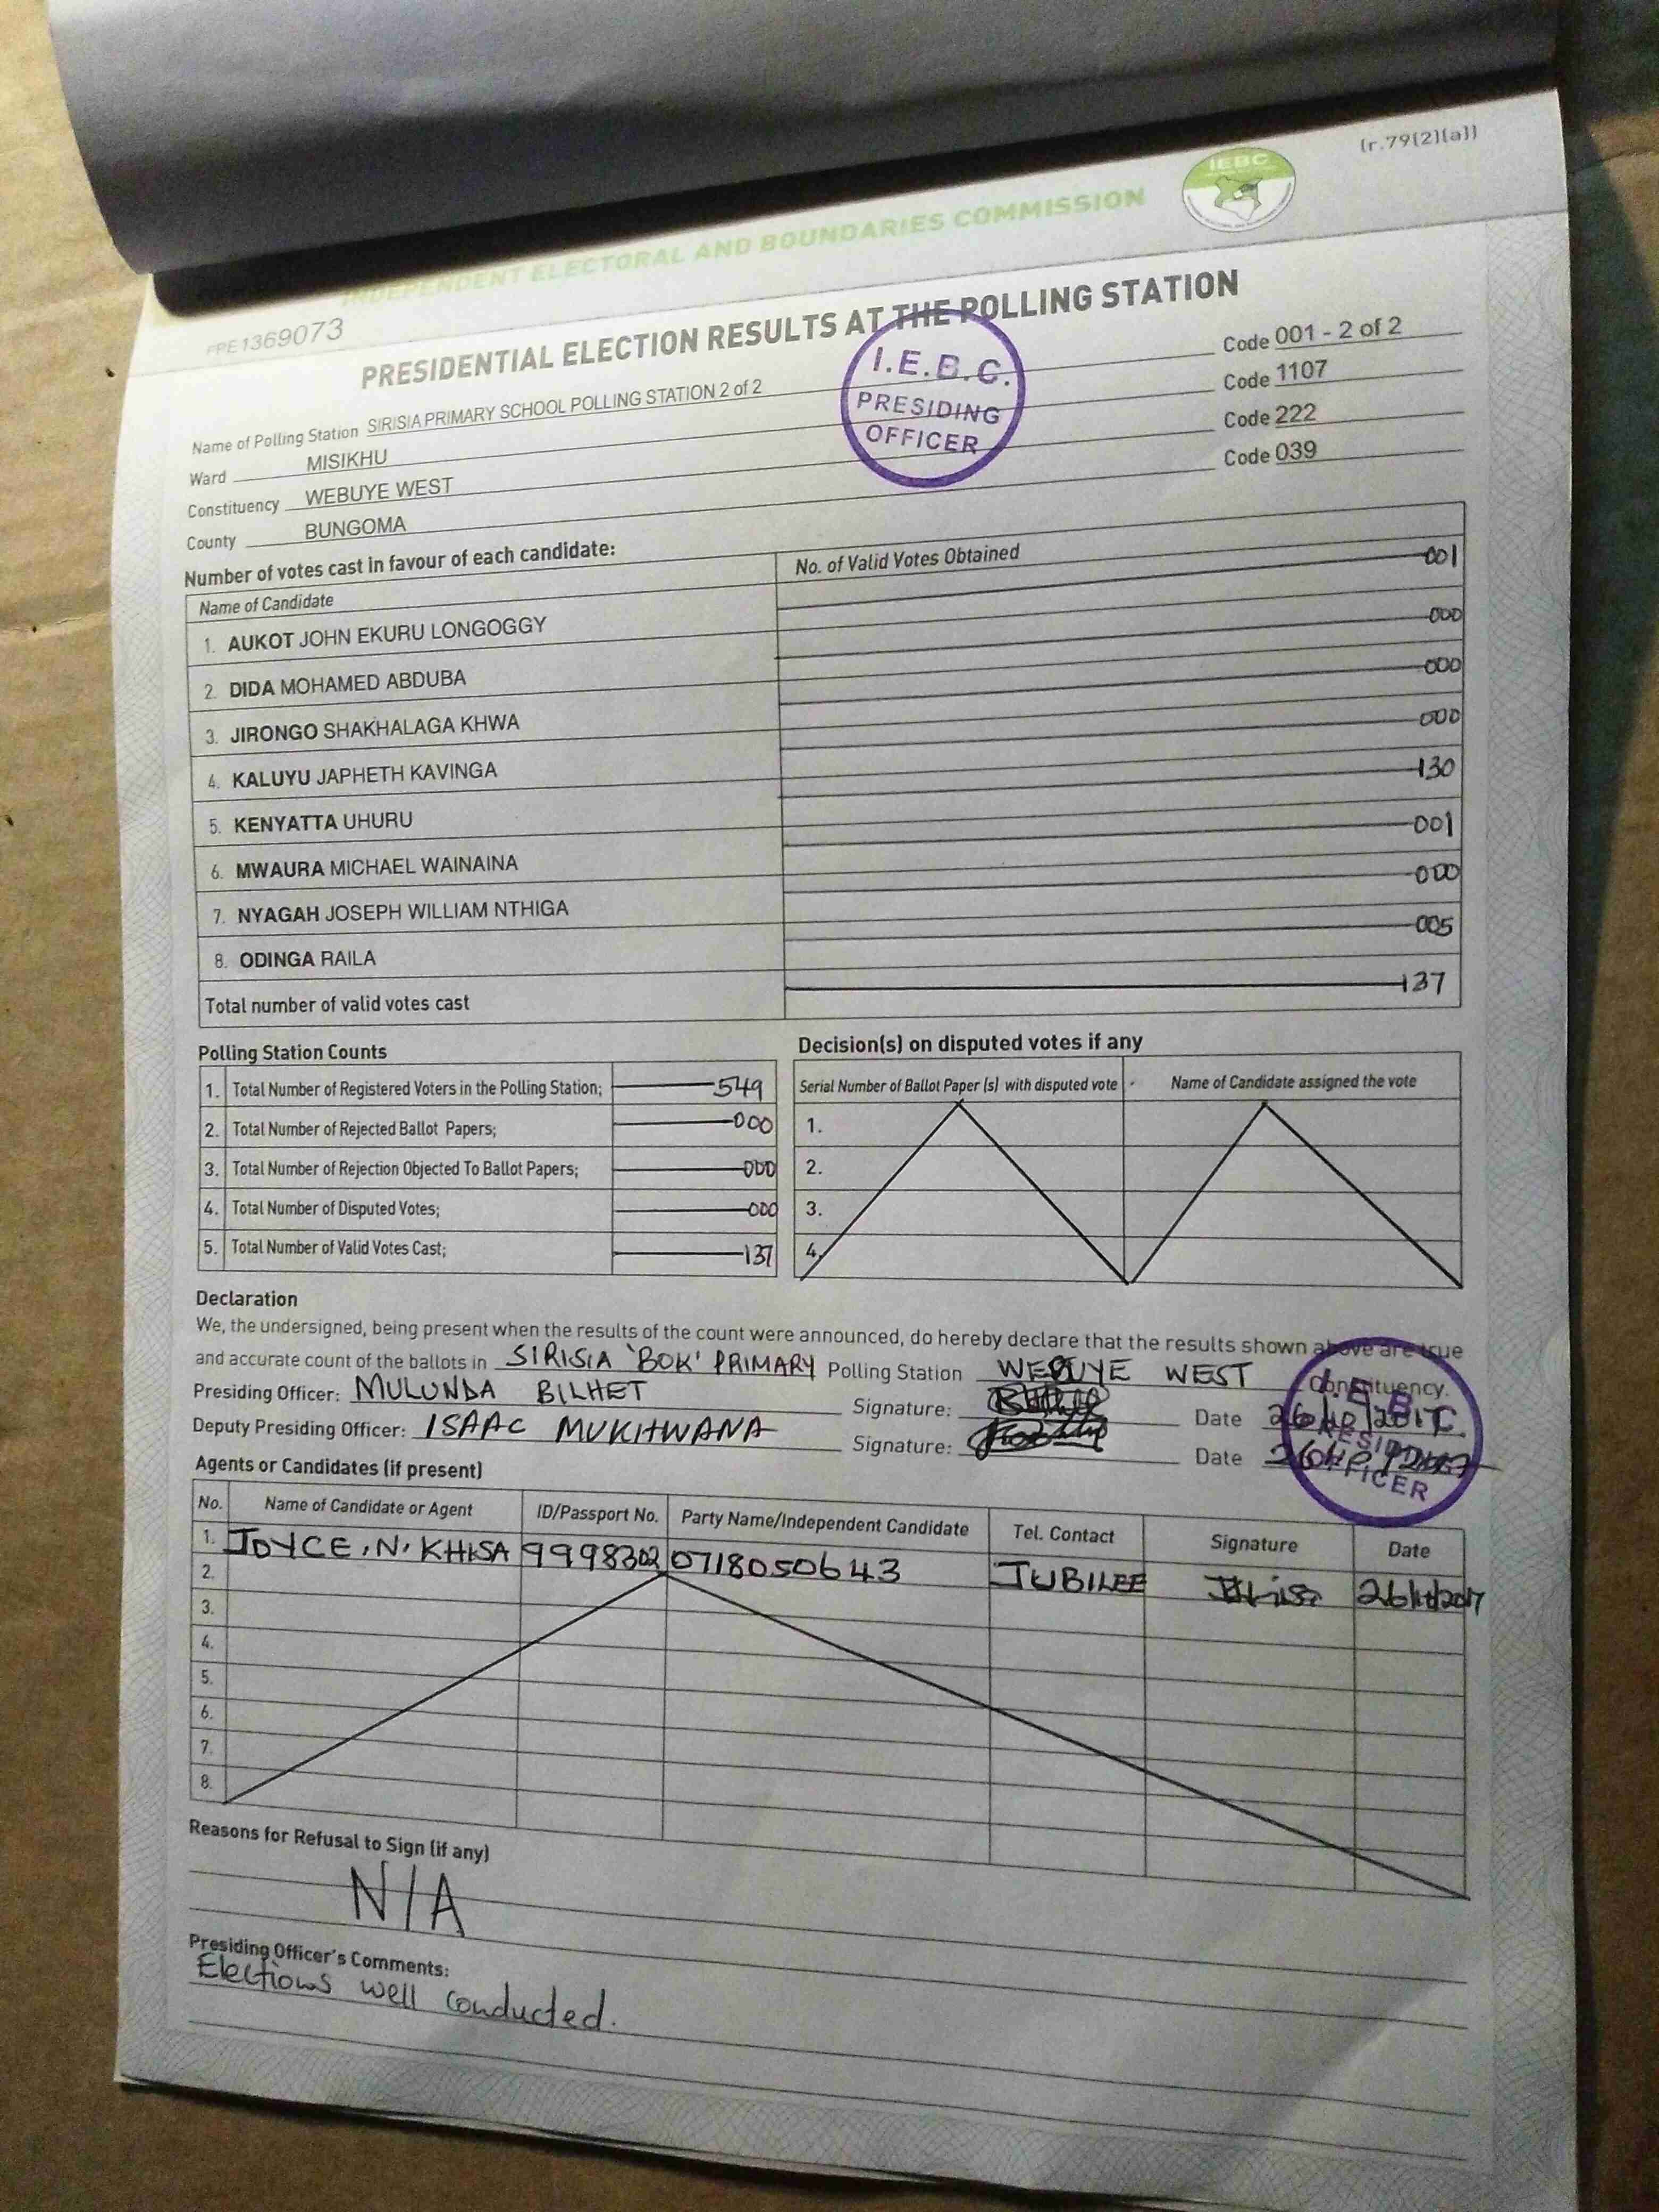 (r.79(2)(a))
IEBC
INDEPENDENT ELECTORAL AND BOUNDARIES COMMISSION
PRE1369073
PRESIDENTIAL ELECTION RESULTS AT THE POLLING STATION
I.E.B.C.
PRESIDING
OFFICER
Name of Polling Station SIRISIA PRIMARY SCHOOL POLLING STATION 2 of 2 Code 001 - 2 of 2
Ward MISIKHU Code 1107
Constituency WEBUYE WEST Code 222
County BUNGOMA Code 039
Number of votes cast in favour of each candidate:
Name of Candidate No. of Valid Votes Obtained
1. AUKOT JOHN EKURU LONGOGGY 001
2. DIDA MOHAMED ABDUBA 000
3. JIRONGO SHAKHALAGA KHWA 000
4. KALUYU JAPHETH KAVINGA 000
5. KENYATTA UHURU 130
6. MWAURA MICHAEL WAINAINA 001
7. NYAGAH JOSEPH WILLIAM NTHIGA 000
8. ODINGA RAILA 005
Total number of valid votes cast 137
Polling Station Counts
1. Total Number of Registered Voters in the Polling Station; 549
2. Total Number of Rejected Ballot Papers; 000
3. Total Number of Rejection Objected To Ballot Papers; 000
4. Total Number of Disputed Votes; 000
5. Total Number of Valid Votes Cast; 137
Decision(s) on disputed votes if any
Serial Number of Ballot Paper (s) with disputed vote Name of Candidate assigned the vote
1.
2.
3.
4.
Declaration
We, the undersigned, being present when the results of the count were announced, do hereby declare that the results shown above are true
and accurate count of the ballots in SIRISIA 'BOK' PRIMARY Polling Station WEBUYE WEST Constituency.
Presiding Officer: MULUNDA BILHET Signature: Date 26/10/2017
Deputy Presiding Officer: ISAAC MUKHWANA Signature: Date 26/10/2017
I.E.B.C.
PRESIDING
OFFICER
Agents or Candidates (if present)
No. Name of Candidate or Agent ID/Passport No. Party Name/Independent Candidate Tel. Contact Signature Date
1. JOYCE .N. KHISA 9998302 0718050643 JUBILEE JKhisa 26/10/2017
2.
3.
4.
5.
6.
7.
8.
Reasons for Refusal to Sign (if any)
N/A
Presiding Officer's Comments:
Elections well conducted.